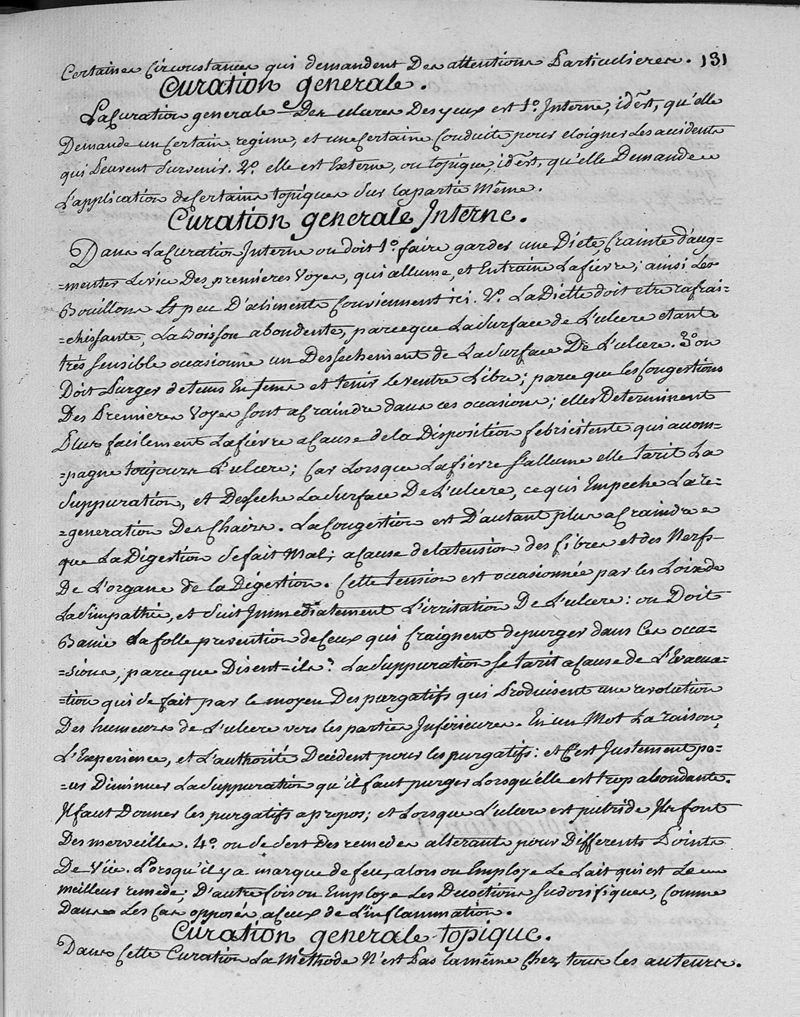 Certaines Circonstances qui demandent Des attentions Particulieres. 131
Curation generale.
La Curation generale Des ulceres Des yeux est 1.° Interne, id est, qu'elle
Demande un Certain regime, et une Certaine Conduite pour eloigner Les accidents
qui Peuvent Survenir. 2.° elle est Externe, ou topique, id est, qu'elle Demande
L'application de Certains topiques Sur la partie Même.
Curation generale Interne.
Dans La Curation Interne on doit 1.° faire garder une Diete, Crainte d'aug=
=menter Le vice Des premieres Voyes, qui allume, et Entraine La fievre; ainsi Les
Bouillons Et peu D'aliments Conviennent ici. 2.° La Diette doit etre rafrai=
=chissante, La Boisson abondente, parceque La Surface de L'ulcere etant
très Sensible occasionne un Dessechement de La Surface De L'ulcere. 3.° on
Doit Purger de tems En tems et tenir Le ventre Libre; parce que les Congestions
Des Premieres Voyes sont a Craindre dans ces occasions; elles Determinent
Plus facilement La fievre a Cause de la Disposition febricitente qui accom=
=pagne toujours L'ulcere; Car Lorsque La fievre S'allume elle tarit La
Suppuration, et Desseche La Surface De L'ulcere, ce qui Empeche La re=
=generation Des Chairs. La Congestion est D'autant plus a Craindre
que La Digestion Se fait Mal; a Cause de la tension des fibres et des Nerfs
De L'organe de la Digestion. Cette tension est occasionnée par les Loix de
La Simpathie, et Suit Immediatement L'irritation De L'ulcere: on Doit
Banir La folle prevention de Ceux qui Craignent de purger dans Ces occa=
=sions, parce que Disent-ils? La Suppuration Se tarit a Cause de L'Evacua=
=tion qui Se fait par le moyen Des purgatifs qui Produisent une revolution
Des humeurs de L'ulcere vers les parties Inferieures. En un Mot La raison,
L'Experience, et L'authorité Decident pour les purgatifs: et C'est Justement po=
=us Diminuer La Suppuration qu'il faut purger Lorsqu'elle est trop abondante.
Il faut Donner les purgatifs a propos; et Lorsque L'ulcere est putride Ils font
Des merveilles. 4.° on Se Sert Des remedes alterants pour Differents Points
De Vüe. Lorsqu'il y a marque de feu, alors on Employe Le Lait qui est Le
meilleur remede; D'autre fois on Employe Les Decoctions Sudorifiques, Comme
Dans Les Cas opposés a Ceux de L'inflammation.
Curation generale topique.
Dans Cette Curation La Methode N'est Pas la même Chez tous les auteurs.